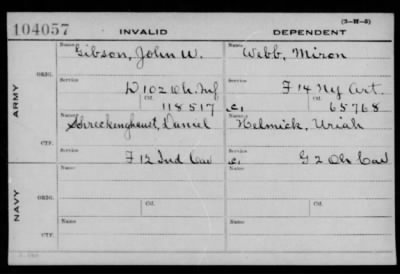 (3-H-5)
104057 INVALID DEPENDENT
Name Gibson, John W. Name Webb, Miron
ORIG. Service D 102 Oh. Inf Service F 14 Ny Art.
ARMY Ctf. 118517 C, Ctf. 65768
Name Shreckenghaust, Daniel Name Helmick, Uriah
CTF. Service F 12 Ind Cav Service C, G 2 Oh Cav
Name Name
ORIG.
NAVY Service Ctf. Service Ctf.
Name Name
CTF.